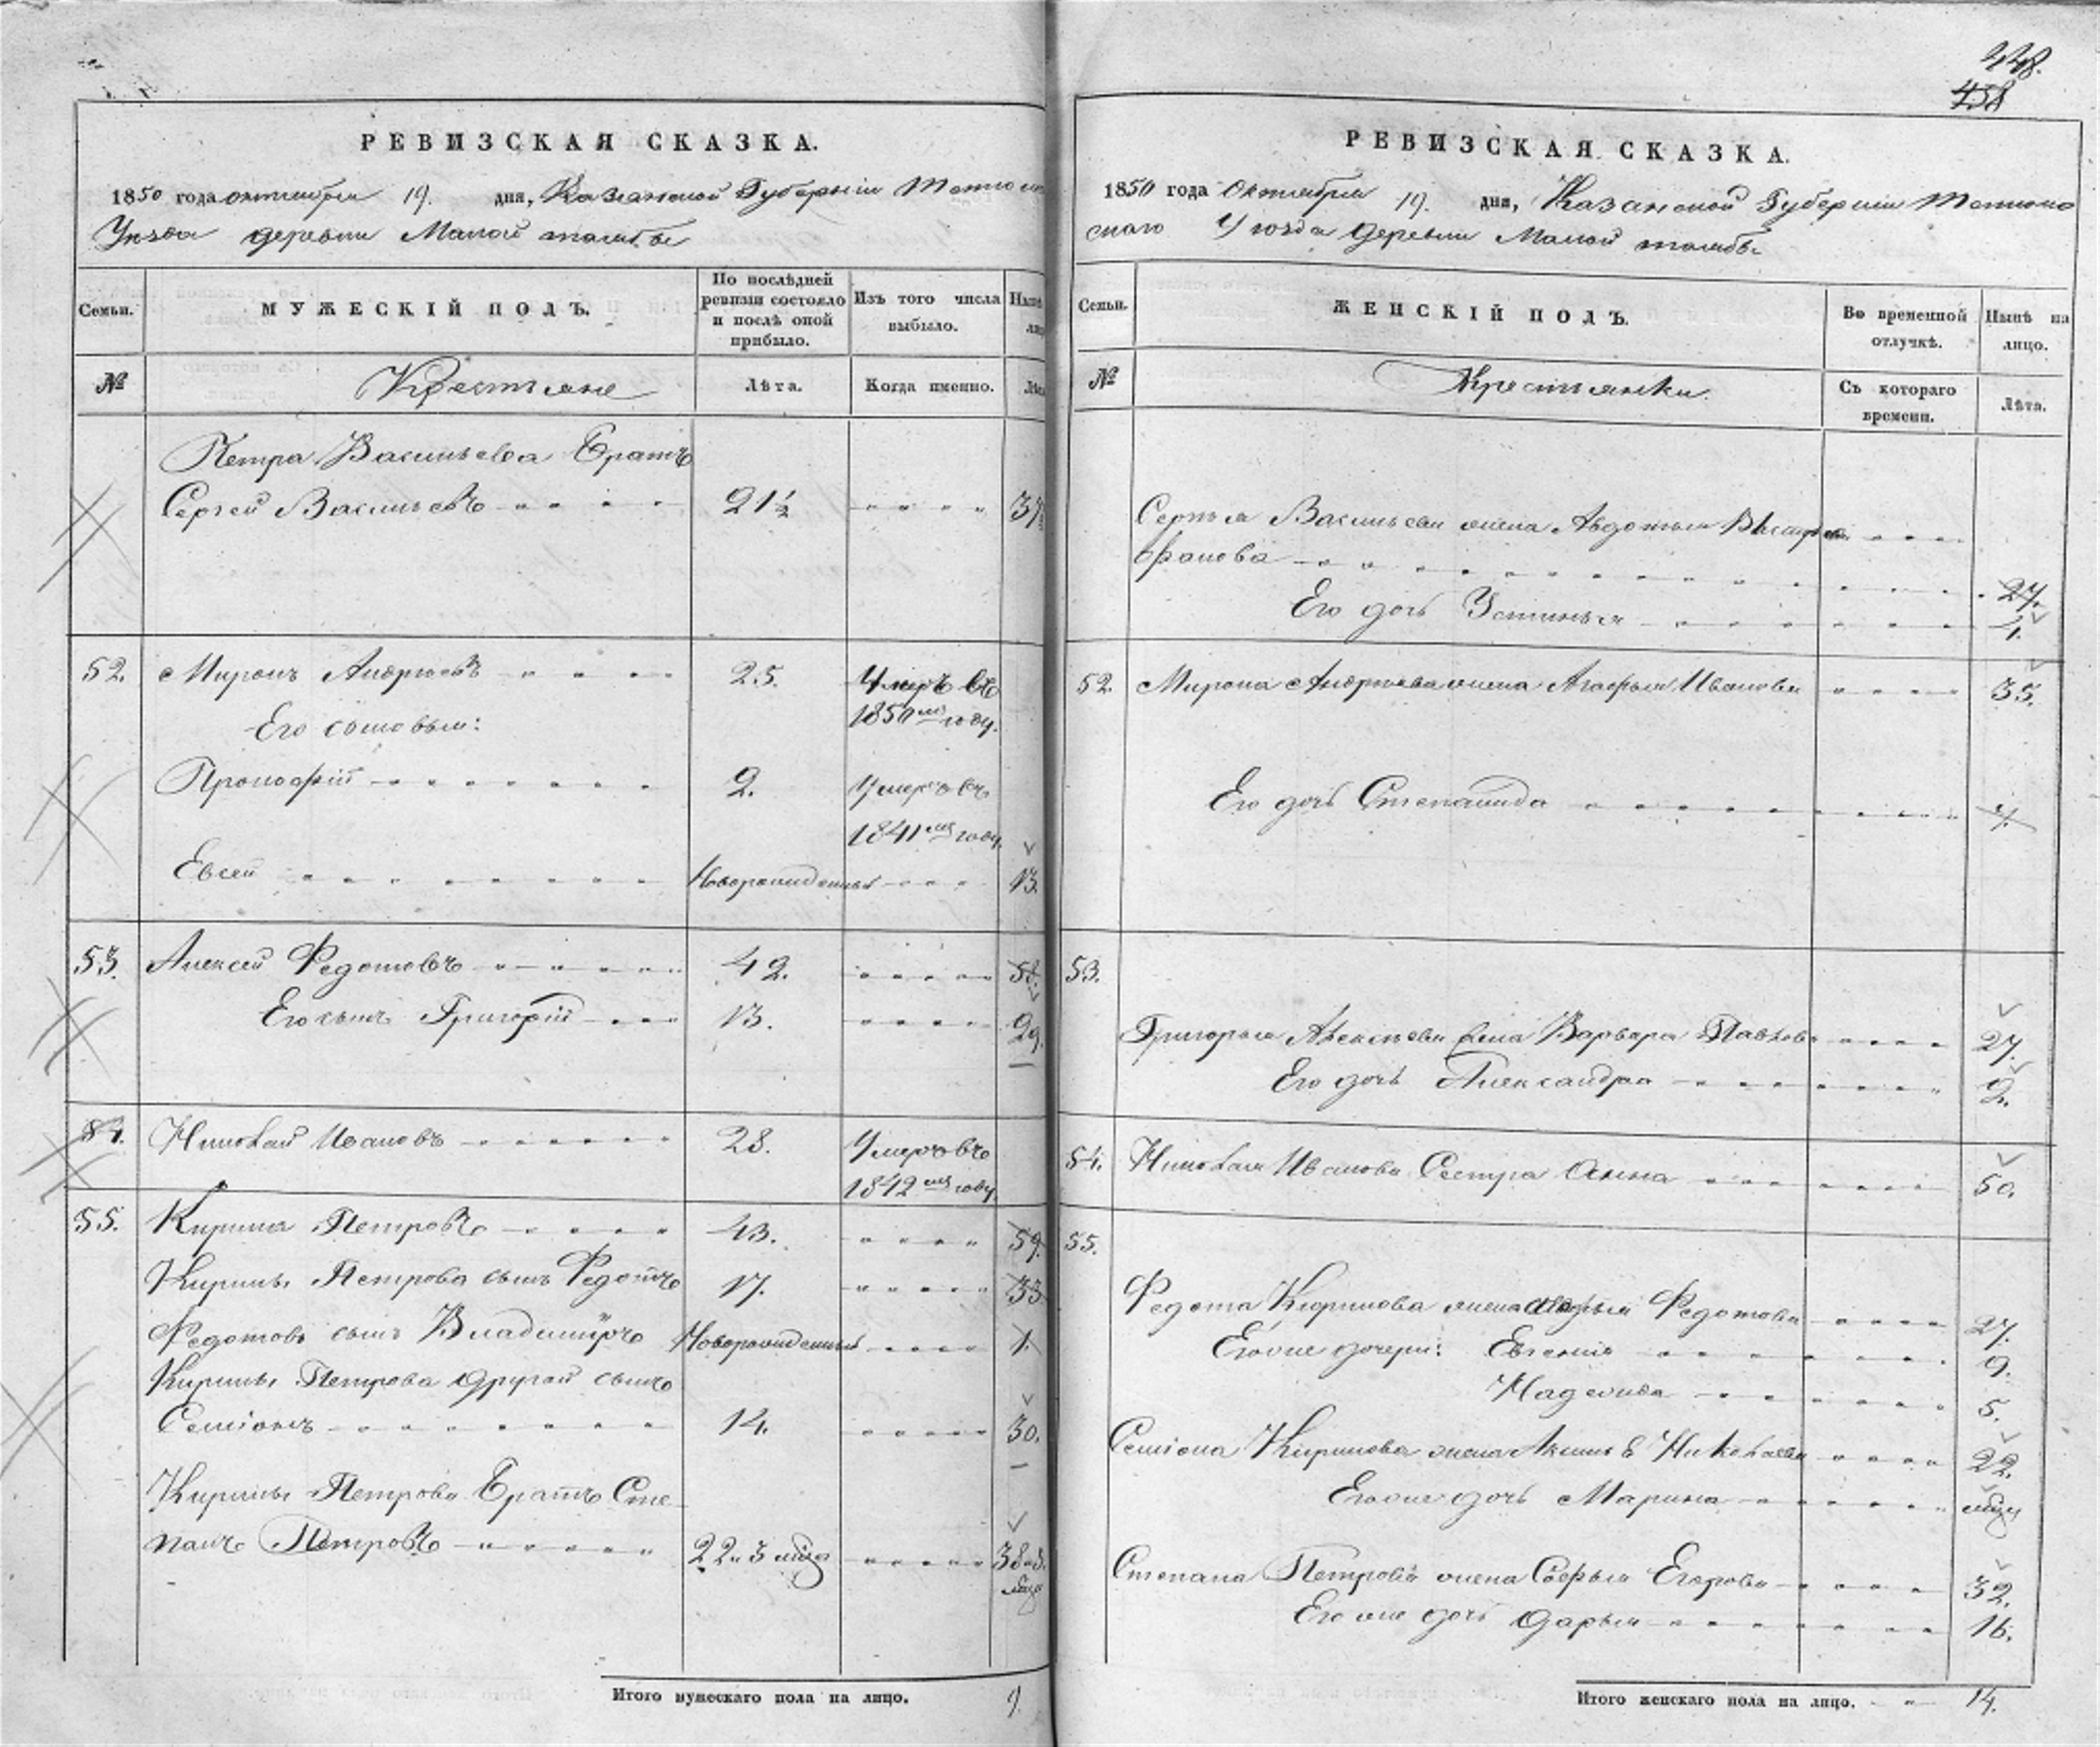 448.
458
РЕВИЗСКАЯ СКАЗКА.
1850 года октября 19. дня, Казанской Губернии
Уезда деревни Малой
Семьи.
МУЖЕСКІЙ ПОЛЪ.
По послѣдней ревизіи состояло и послѣ оной прибыло.
Изъ того числа выбыло.
№
Крестьяне
Лѣта.
Когда именно.
Петра Васильева Братъ
Сергей Васильевъ 21½
52. Миронъ Андреевъ 25. Умеръ въ
1850мъ году.
Его сыновья:
Прокофій 2. Умеръ въ
1841мъ году.
Евсей Новорожденный 13.
53. Алексей Федотовъ 42. 58.
Его сынъ Григорій 13. 29.
54. Николай Ивановъ 28. Умеръ въ
1842мъ году.
55. Кирила Петровъ 43. 59.
Кирилы Петрова сынъ Федотъ 17. 33
Федотовъ сынъ Владимиръ Новорожденный 1.
Кирилы Петрова другой сынъ
Семіонъ 14. 30.
Кирилы Петрова Братъ Сте
панъ Петровъ 22 и 3 мѣся 38 и 3.
мѣся
Итого мужескаго пола на лицо. 9.
РЕВИЗСКАЯ СКАЗКА.
1850 года Октября 19. дня, Казанской Губерніи
скаго Уюзда деревни Малой
Семьи.
ЖЕНСКІЙ ПОЛЪ.
Во временной отлучкѣ.
Нынѣ на лицо.
№
Крестьянки.
Съ котораго времени.
Лѣта.
Сергея Васильева жена Авдотья
фанова 27.
Его дочь Устинья 4.
52. Мирона Андреева жена Агафья Иванова 35.
Его дочь Степанида 4.
53.
Григорья Алексеева жена Варвара Павлова 27.
Его дочь Александра 2.
54. Николая Иванова Сестра Анна 50.
55.
Федота Кирилова жена Федотова 27.
Его же дочери: Евгенія 9.
Надежда 5.
Семіона Кирилова жена Николаева 22.
Его же дочь Марина
Степана Петрова жена Софья Егорова 32.
Его же дочь Дарья 16.
Итого женскаго пола на лицо. 14.